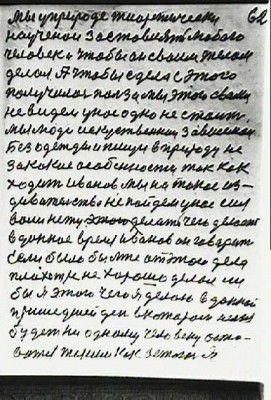 62
Мы у природе теоретически
научены заставлять любого
человека чтобы он своим телом
делал А чтобы сделать этого
получилось польза мы этого сами
не видем у нас одно не стоит.
мы люди искуственной зависимости
Без одежды и пищи в природу не
за какие особенности так как
ходит иванов мы на такое из-
дивательство не пойдем у нас сил
воли нету этого делать чего делает
в данное время иванов он говорит
если было бы мне от этого дела
плохо тре не хорошо делал ли
бы я этого чего я делаю в данной
пришедшей ден в котором нель
будет ни одному человеку
таким как этого я